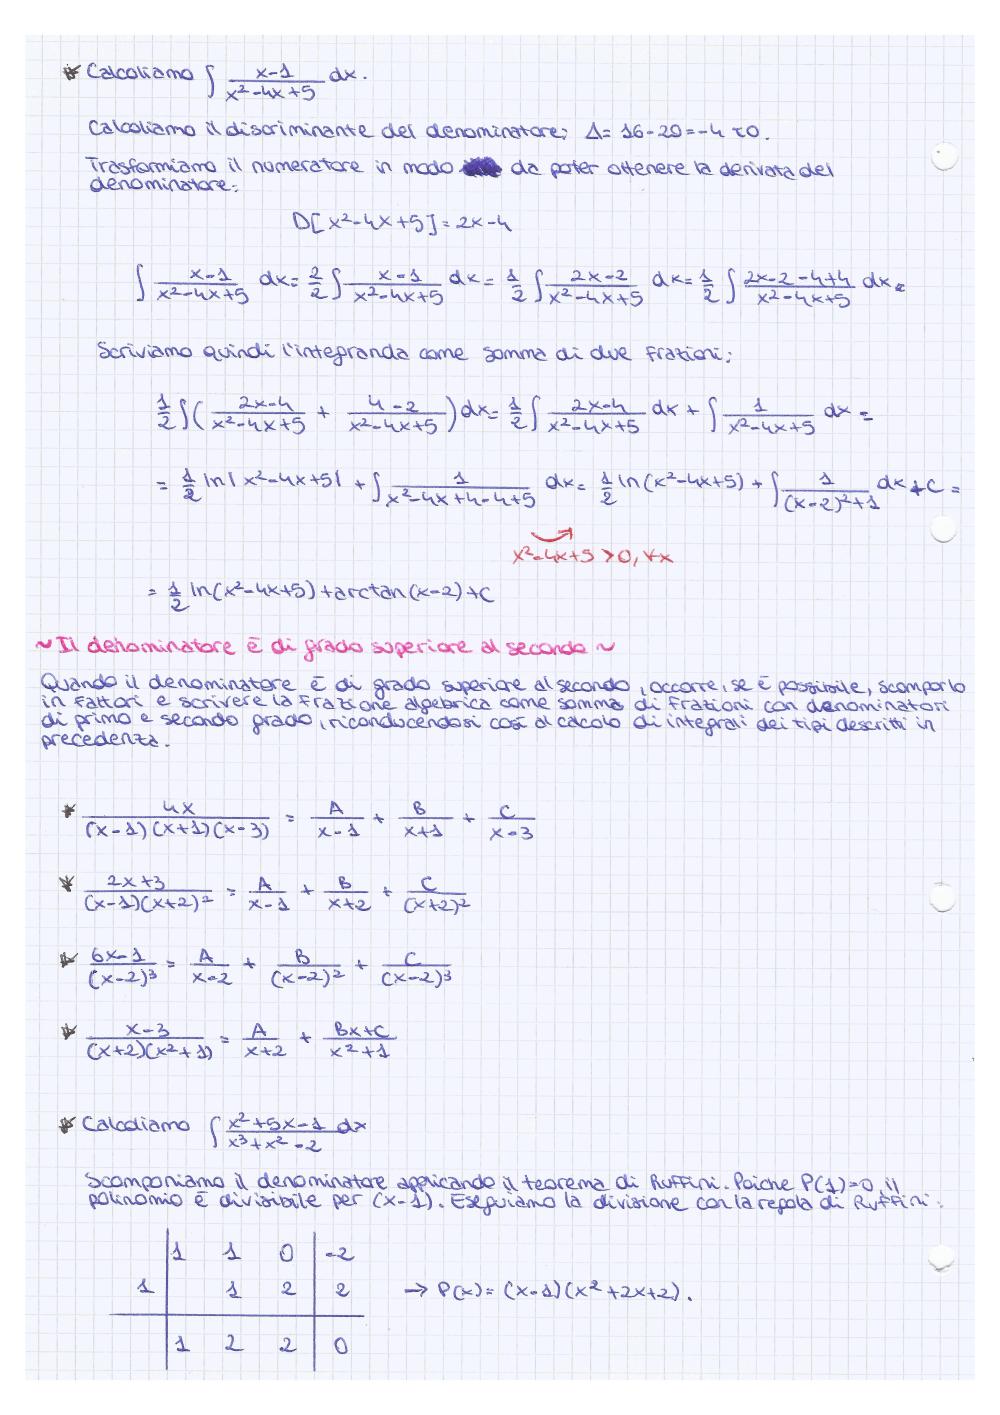 * Calcoliamo ∫ (x-1)/(x²-4x+5) dx.
Calcoliamo il discriminante del denominatore: Δ= 16-20=-4 <0.
Trasformiamo il numeratore in modo da poter ottenere la derivata del
denominatore:
D[x²-4x+5]=2x-4
∫ (x-1)/(x²-4x+5) dx= 2/2 ∫ (x-1)/(x²-4x+5) dx= 1/2 ∫ (2x-2)/(x²-4x+5) dx= 1/2 ∫ (2x-2-4+4)/(x²-4x+5) dx=
Scriviamo quindi l'integranda come somma di due frazioni:
1/2 ∫( (2x-4)/(x²-4x+5) + (4-2)/(x²-4x+5) )dx= 1/2 ∫ (2x-4)/(x²-4x+5) dx + ∫ 1/(x²-4x+5) dx =
= 1/2 ln|x²-4x+5| + ∫ 1/(x²-4x+4-4+5) dx= 1/2 ln(x²-4x+5) + ∫ 1/((x-2)²+1) dx +C =
x²-4x+5>0,∀x
= 1/2 ln(x²-4x+5)+arctan(x-2)+C
~ Il denominatore è di grado superiore al secondo ~
Quando il denominatore è di grado superiore al secondo, occorre, se è possibile, scomporlo
in fattori e scrivere la frazione algebrica come somma di frazioni con denominatori
di primo e secondo grado, riconducendosi così al calcolo di integrali dei tipi descritti in
precedenza.
* 4x/((x-1)(x+1)(x-3)) = A/(x-1) + B/(x+1) + C/(x-3)
* (2x+3)/((x-1)(x+2)²) = A/(x-1) + B/(x+2) + C/(x+2)²
* (6x-1)/(x-2)³ = A/(x-2) + B/(x-2)² + C/(x-2)³
* (x-3)/((x+2)(x²+1)) = A/(x+2) + (Bx+C)/(x²+1)
* Calcoliamo ∫ (x²+5x-1)/(x³+x²-2) dx
Scomponiamo il denominatore applicando il teorema di Ruffini. Poiché P(1)=0, il
polinomio è divisibile per (x-1). Eseguiamo la divisione con la regola di Ruffini:
1 1 0 -2
1 1 2 2 → P(x)= (x-1)(x²+2x+2).
1 2 2 0